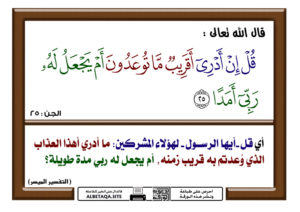 قال الله تعالى :
قُلْ إِنْ أَدْرِىٓ أَقَرِيبٌ مَّا تُوعَدُونَ أَمْ يَجْعَلُ لَهُۥ
رَبِّىٓ أَمَدًا ٢٥
الجن : ٢٥
أي قل - أيها الرسول - لهؤلاء المشركين: ما أدري أهذا العذاب
الذي وُعدتم به قريب زمنه، أم يجعل له ربي مدة طويلة؟
(التفسير الميسر)
ALBETAQA.SITE
ALBETAQA.SITE